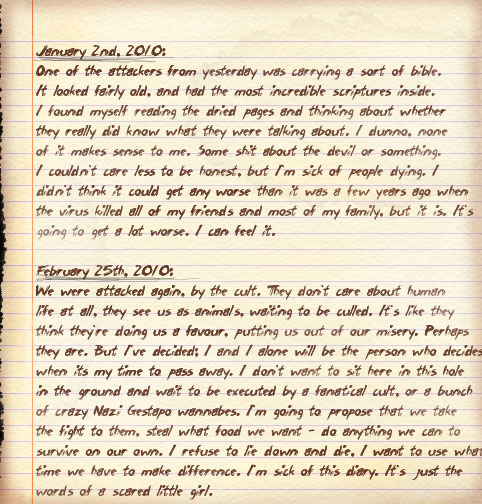 January 2nd, 2010:
One of the attackers from yesterday was carrying a sort of bible.
It looked fairly old, and had the most incredible scriptures inside.
I found myself reading the dried pages and thinking about whether
they really did know what they were talking about. I dunno, none
of it makes sense to me. Some shit about the devil or something.
I couldn't care less to be honest, but I'm sick of people dying. I
didn't think it could get any worse than it was a few years ago when
the virus killed all of my friends and most of my family, but it is. It's
going to get a lot worse. I can feel it.
February 25th, 2010:
We were attacked again, by the cult. They don't care about human
life at all, they see us as animals, waiting to be culled. It's like they
think they're doing us a favour, putting us out of our misery. Perhaps
they are. But I've decided; I and I alone will be the person who decides
when its my time to pass away. I don't want to sit here in this hole
in the ground and wait to be executed by a fanatical cult, or a bunch
of crazy Nazi Gestapo wannabes. I'm going to propose that we take
the fight to them, steal what food we want - do anything we can to
survive on our own. I refuse to lie down and die, I want to use what
time we have to make difference. I'm sick of this diary. It's just the
words of a scared little girl.